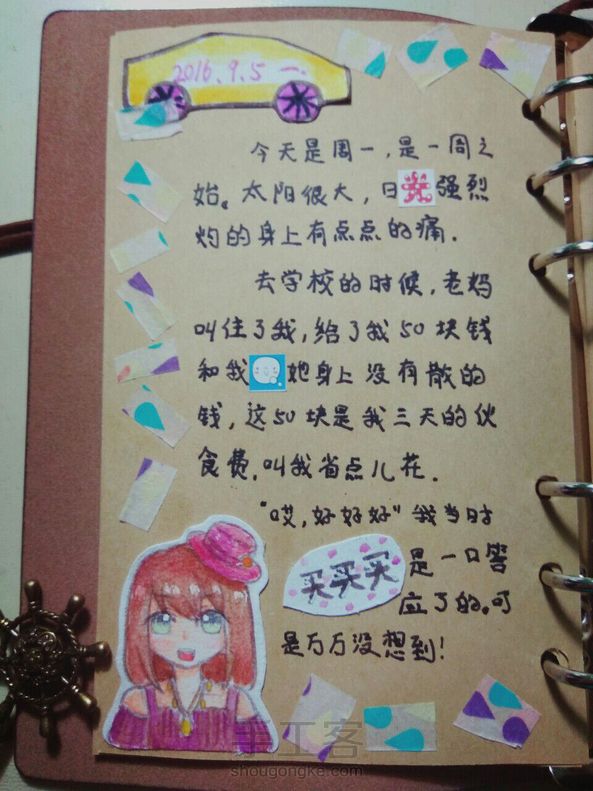 2016.9.5 一.
今天是周一，是一周之
始。太阳很大，日光强烈
灼的身上有点点的痛.
去学校的时候，老妈
叫住了我，给了我50块钱
和我说她身上没有散的
钱，这50块是我三天的伙
食费，叫我省点儿花.
"哎，好好好"我当时
买买买 是一口答
应了的。可
是万万没想到！
手工客
shougongke.com